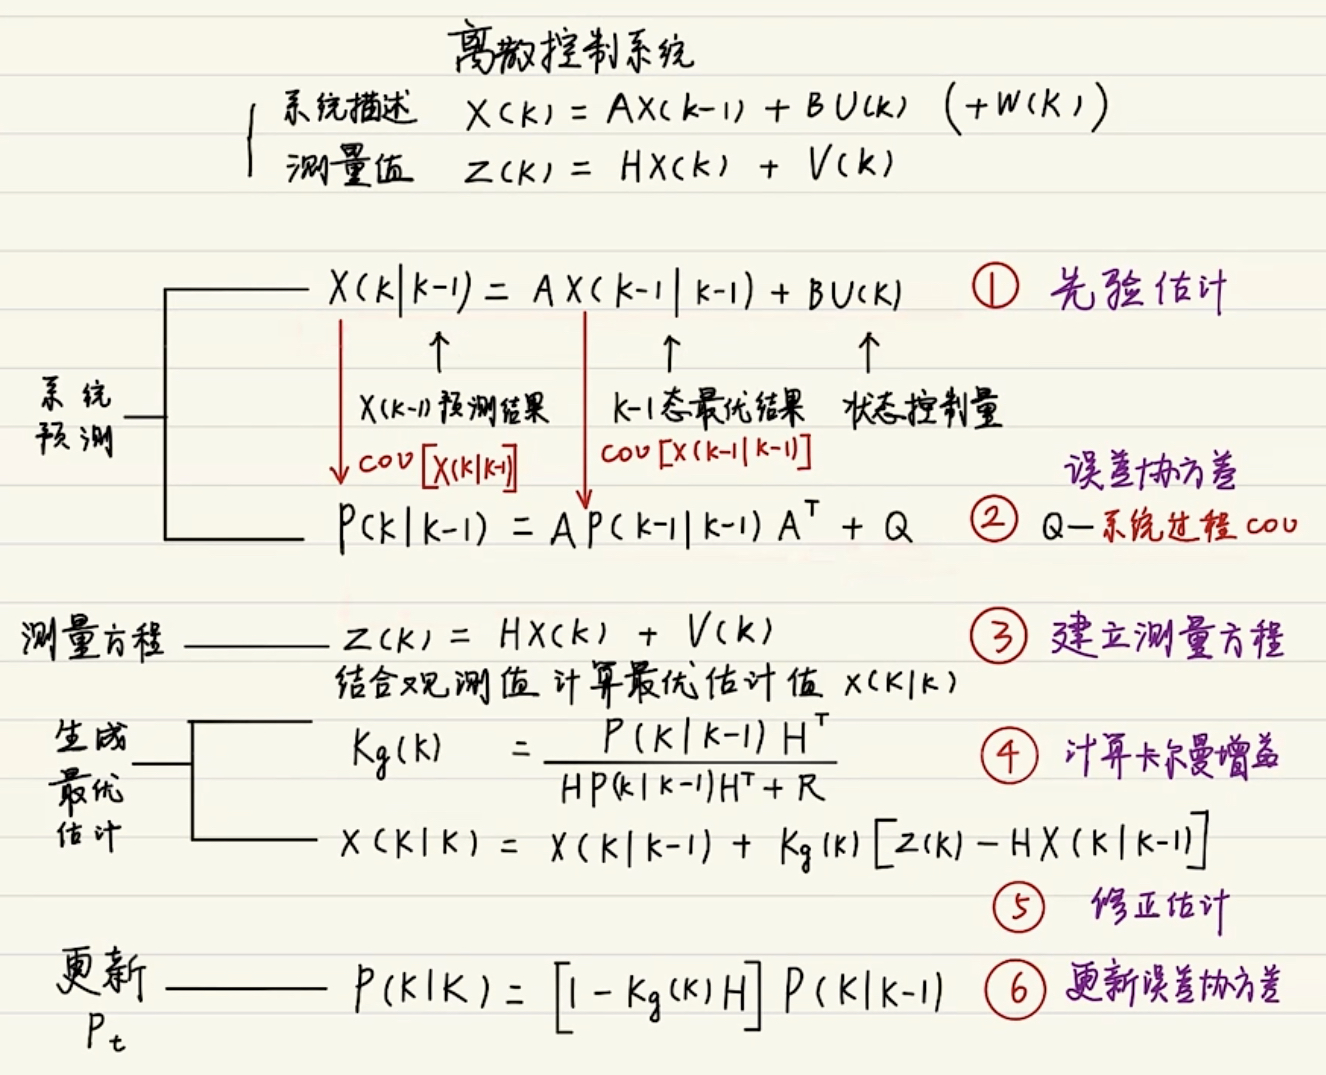 离散控制系统
系统描述 X(k) = AX(k-1) + BU(k) (+W(K))
测量值 Z(K) = HX(K) + V(K)
X(K|K-1) = AX(K-1|K-1) + BU(K) ① 先验估计
↑ ↑ ↑
系统预测
X(K-1)预测结果 K-1态最优结果 状态控制量
cov[X(K|K-1)] cov[X(K-1|K-1)]
误差协方差
P(K|K-1) = AP(K-1|K-1)Aᵀ + Q ② Q—系统过程cov
测量方程 Z(K) = HX(K) + V(K) ③ 建立测量方程
结合观测值计算最优估计值 X(K|K)
生成最优估计
Kg(K) = P(K|K-1)Hᵀ / HP(K|K-1)Hᵀ + R ④ 计算卡尔曼增益
X(K|K) = X(K|K-1) + Kg(K)[Z(K) - HX(K|K-1)]
⑤ 修正估计
更新 P(K|K) = [1 - Kg(K)H]P(K|K-1) ⑥ 更新误差协方差
Pt